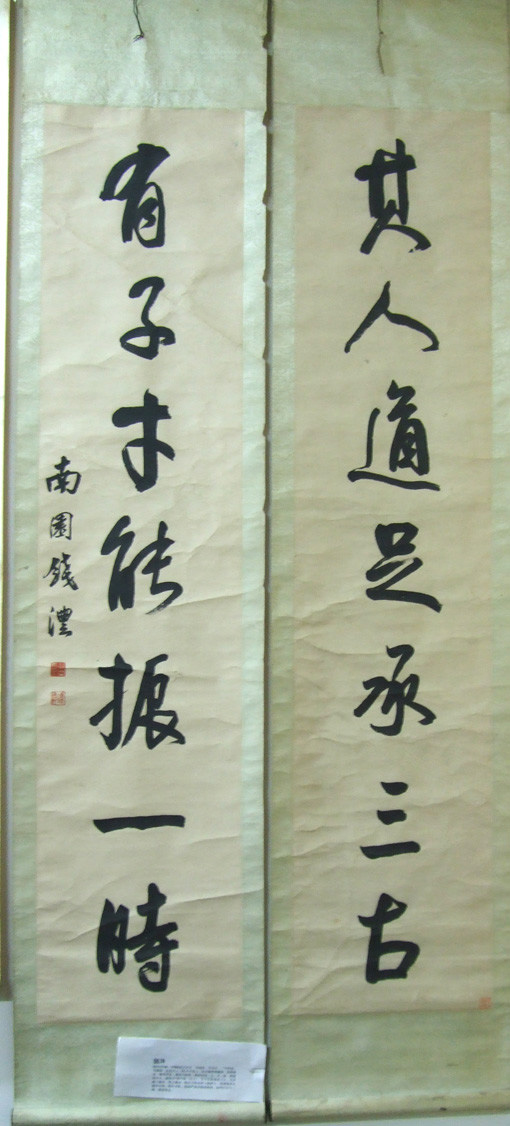 其人道足承三古
有子才能振一時
南園錢澧